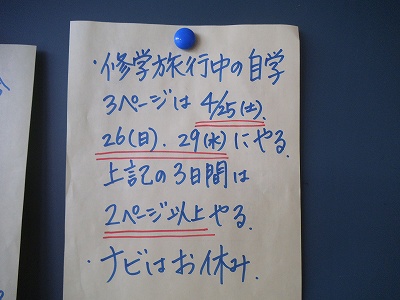 ・修学旅行中の自学
3ページは 4/25(土).
26(日). 29(水)にやる.
上記の3日間は
2ページ以上やる.
・ナビはお休み.